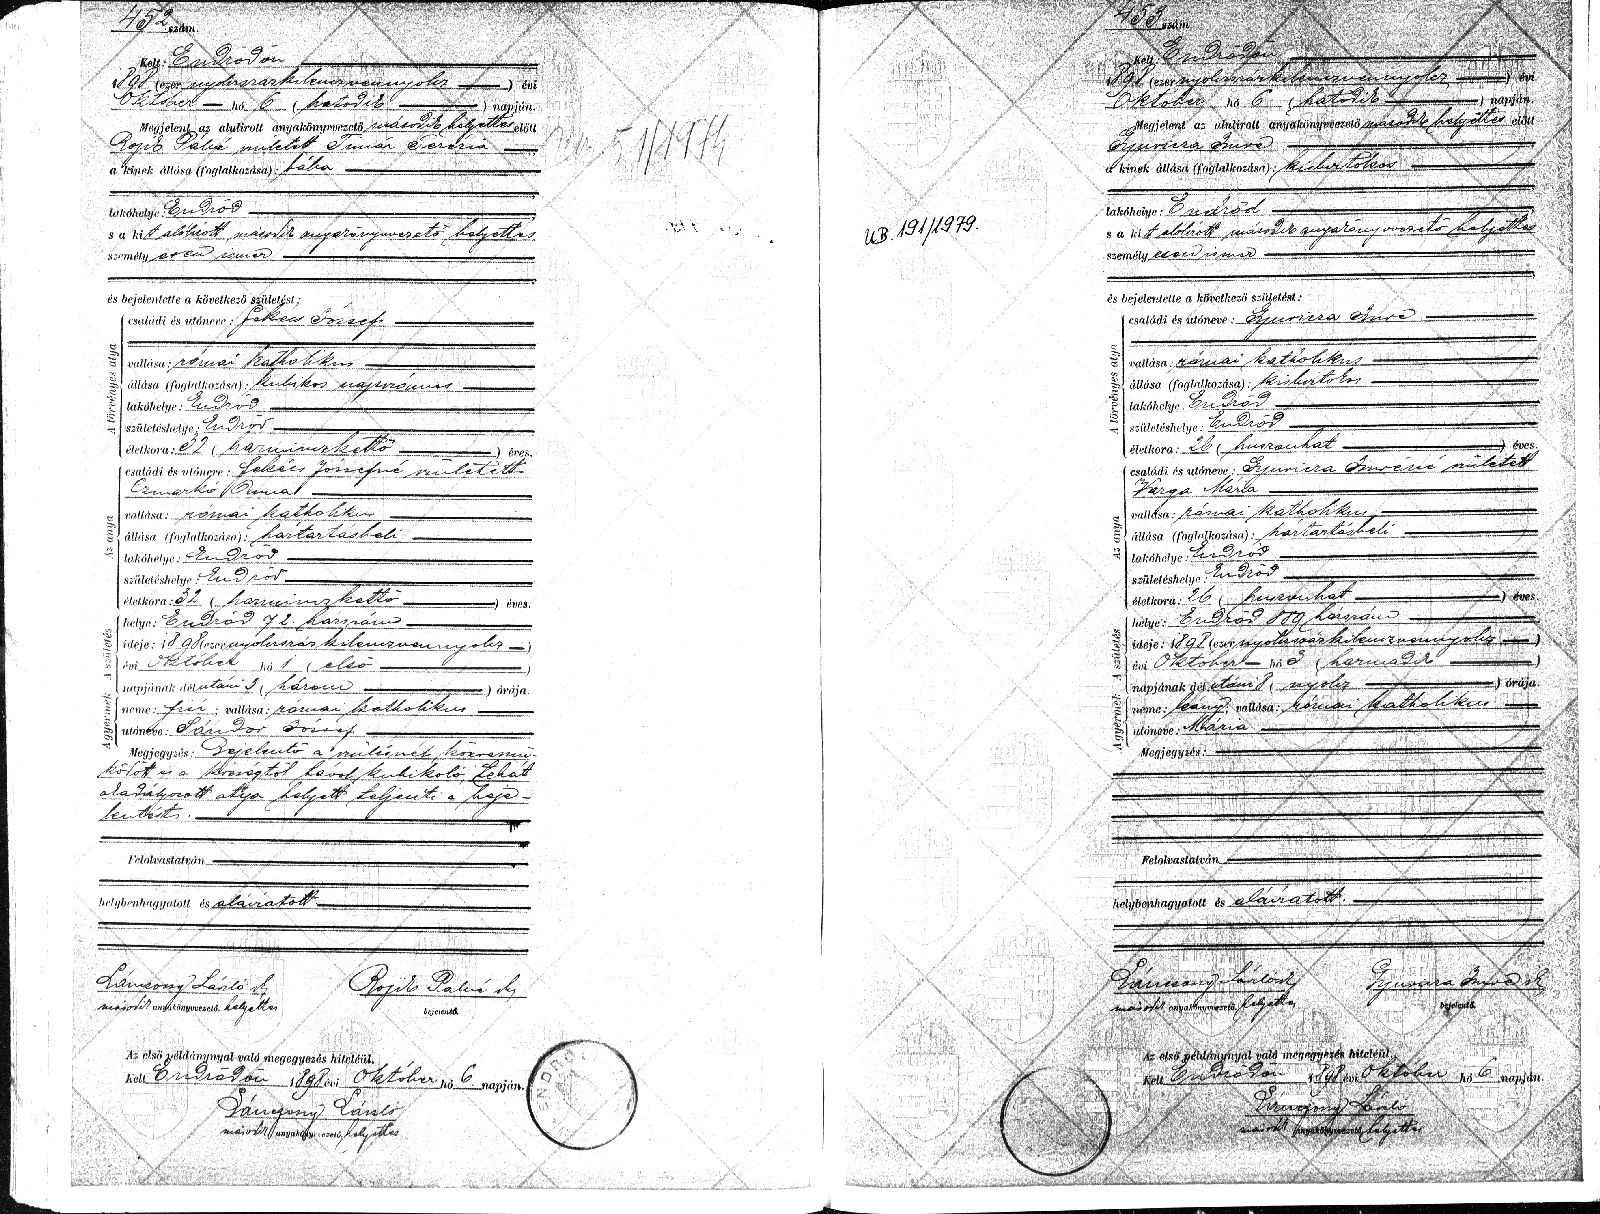 452 szám.
Kelt: Endrődön
1898 (ezer nyolcszázkilenczvennyolcz) évi
Október hó 6 (hatodik) napján.
Megjelent az alulirott anyakönyvvezető második helyettes előtt
Rojik Pálné született Timár Terézia
a kinek állása (foglalkozása): bába
lakóhelye: Endrőd
s a kit alólirott második anyakönyvvezető helyettes
személyesen ismer
és bejelentette a következő születést:
A törvényes atya
családi és utóneve: József
vallása: római katholikus
állása (foglalkozása): kubikos napszámos
lakóhelye: Endrőd
születéshelye: Endrőd
életkora: 32 (harminczkettő) éves.
Az anya
családi és utóneve: Józsefné született
Czmarkó Anna
vallása: római katholikus
állása (foglalkozása): háztartásbeli
lakóhelye: Endrőd
születéshelye: Endrőd
életkora: 32 (harminczkettő) éves.
A születés
helye: Endrőd 72 házszám
ideje: 1898 (ezer nyolcszázkilenczvennyolcz)
évi október hó 1 (első)
napjának délutáni 3 (három) órája.
A gyermek
neme: fiu; vallása: római katholikus
utóneve: Sándor József
Megjegyzés: Bejelentő a szülésnél közremű-
ködött és a községtől távol kubikoló, tehát
akadályozott atya helyett teljesíti a beje-
lentést.
Felolvastatván
helybenhagyatott és aláiratott
László sk
második anyakönyvvezető helyettes
Rojik Pálné sk
bejelentő.
Az első példánynyal való megegyezés hiteléül,
Kelt Endrődön 1898 évi Október hó 6 napján.
László
második anyakönyvvezető helyettes
51/1974
UB. 191/1979.
453 szám
Kelt: Endrődön
1898 (ezer nyolcszázkilenczvennyolcz) évi
Október hó 6 (hatodik) napján
Megjelent az alulirott anyakönyvvezető második helyettes előtt
Gyuricza Imre
a kinek állása (foglalkozása): kisbirtokos
lakóhelye: Endrőd
s a kit alólirott második anyakönyvvezető helyettes
személyesen ismer
és bejelentette a következő születést:
A törvényes atya
családi és utóneve: Gyuricza Imre
vallása: római katholikus
állása (foglalkozása): kisbirtokos
lakóhelye: Endrőd
születéshelye: Endrőd
életkora: 26 (huszonhat) éves.
Az anya
családi és utóneve: Gyuricza Imréné született
Varga Mária
vallása: római katholikus
állása (foglalkozása): háztartásbeli
lakóhelye: Endrőd
születéshelye: Endrőd
életkora: 26 (huszonhat) éves.
A születés
helye: Endrőd házszám
ideje: 1898 (ezer nyolcszázkilenczvennyolcz)
évi Október hó 3 (harmadik)
napjának délutáni 8 (nyolcz) órája.
A gyermek
neme: leány; vallása: római katholikus
utóneve: Mária
Megjegyzés:
Felolvastatván
helybenhagyatott és aláiratott.
László sk
második anyakönyvvezető helyettes
Gyuricza Imre sk
bejelentő.
Az első példánynyal való megegyezés hiteléül,
Kelt Endrődön 1898 évi Október hó 6 napján.
László
második anyakönyvvezető helyettes